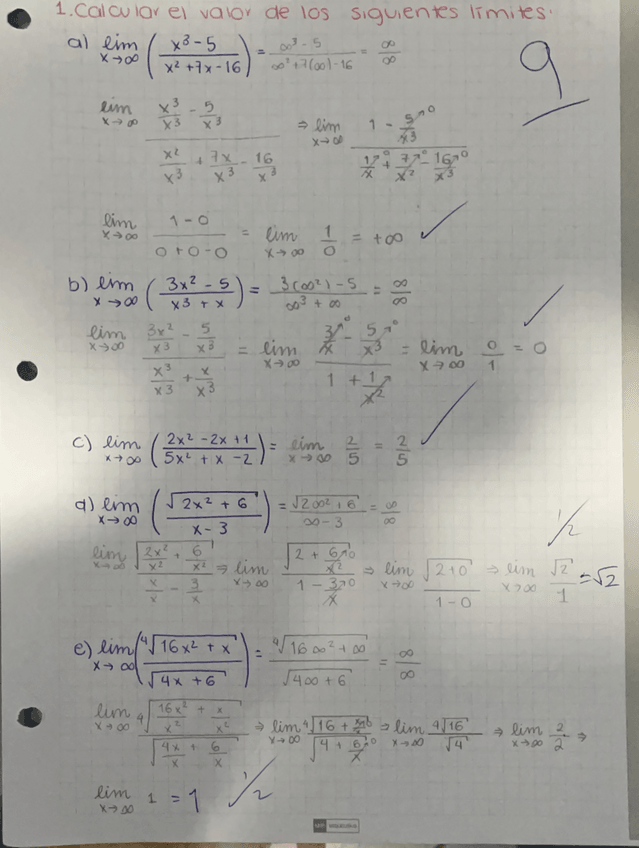 1. Calcular el valor de los siguientes límites.
9
a) lim x→∞ (x³ - 5 / x² + 7x - 16) = ∞³ - 5 / ∞² + 7(∞) - 16 = ∞ / ∞
lim x→∞ x³/x³ - 5/x³ / x²/x³ + 7x/x³ - 16/x³ ⇒ lim x→∞ 1 - 5/x³ ↗0 / 1/x ↗0 + 7/x² ↗0 - 16/x³ ↗0
lim x→∞ 1 - 0 / 0 + 0 - 0 = lim x→∞ 1/0 = +∞ ✓
b) lim x→∞ (3x² - 5 / x³ + x) = 3(∞²) - 5 / ∞³ + ∞ = ∞ / ∞
lim x→∞ 3x²/x³ - 5/x³ / x³/x³ + x/x³ = lim x→∞ 3/x ↗0 - 5/x³ ↗0 / 1 + 1/x² ↗ = lim x→∞ 0/1 = 0 ✓
c) lim x→∞ (2x² - 2x + 1 / 5x² + x - 2) = lim x→∞ 2/5 = 2/5 ✓
d) lim x→∞ (√2x² + 6 / x - 3) = √2∞² + 6 / ∞ - 3 = ∞ / ∞
1/2
lim x→∞ √2x²/x² + 6/x² / x/x - 3/x ⇒ lim x→∞ √2 + 6/x² ↗0 / 1 - 3/x ↗0 ⇒ lim x→∞ √2+0 / 1-0 ⇒ lim x→∞ √2 / 1 = √2
e) lim x→∞ (⁴√16x² + x / √4x + 6) = ⁴√16∞² + ∞ / √4∞ + 6 = ∞ / ∞
lim x→∞ ⁴√16x²/x² + x/x² / √4x/x + 6/x ⇒ lim x→∞ ⁴√16 + / √4 + 6/x ↗0 ⇒ lim x→∞ ⁴√16 / √4 ⇒ lim x→∞ 2/2 ⇒
lim x→∞ 1 = 1 1/2